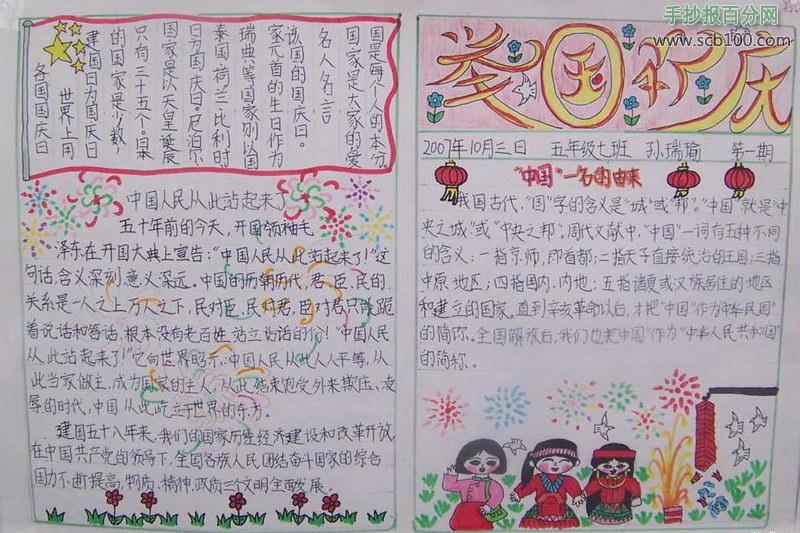 手抄报百分网
www.scb100.com
各国国庆日
世界上用
建国日为国庆日
的国家是少数,
只有三十五个。日本
国家是以天皇诞辰
日为国庆日。尼泊尔
泰国、荷兰、比利时
瑞典等国家则以国
家元首的生日作为
该国的国庆日。
名人名言
国家是大家的爱
国是每个人的本分
中国人民从此站起来了
五十年前的今天，开国领袖毛
泽东在开国大典上宣告："中国人民从此站起来了！"这
句话，含义深刻，意义深远。中国的历朝历代，君、臣、民的
关系是一人之上万人之下，民对臣，民对君，臣对君只能跪
着说话和答话，根本没有老百姓站立说话的份！"中国人民
从此站起来了！"它向世界昭示：中国人民从此人人平等，从
此当家做主，成为国家的主人，从此结束饱受外来欺压、凌
辱的时代，中国从此屹立于世界的东方。
建国五十八年来，我们的国家历经经济建设和改革开放，
在中国共产党的领导下，全国各族人民团结奋斗国家的综合
国力不断提高，物质、精神、政质三个文明全面发展。
举国欢庆
2007年10月三日 五年级七班 孙瑞瑜 第一期
"中国"一名的由来
我国古代，"国"字的含义是"城"或"邦"。"中国"就是"中
央之城"或"中央之邦"。周代文献中，"中国"一词有五种不同
的含义：一指京师，即首都；二指天子直接统治的王国；三指
中原地区；四指国内、内地；五指诸夏或汉族居住的地区
和建立的国家。直到辛亥革命以后，才把"中国"作为"中华民国"
的简称。全国解放后，我们也把"中国"作为"中华人民共和国"
的简称。